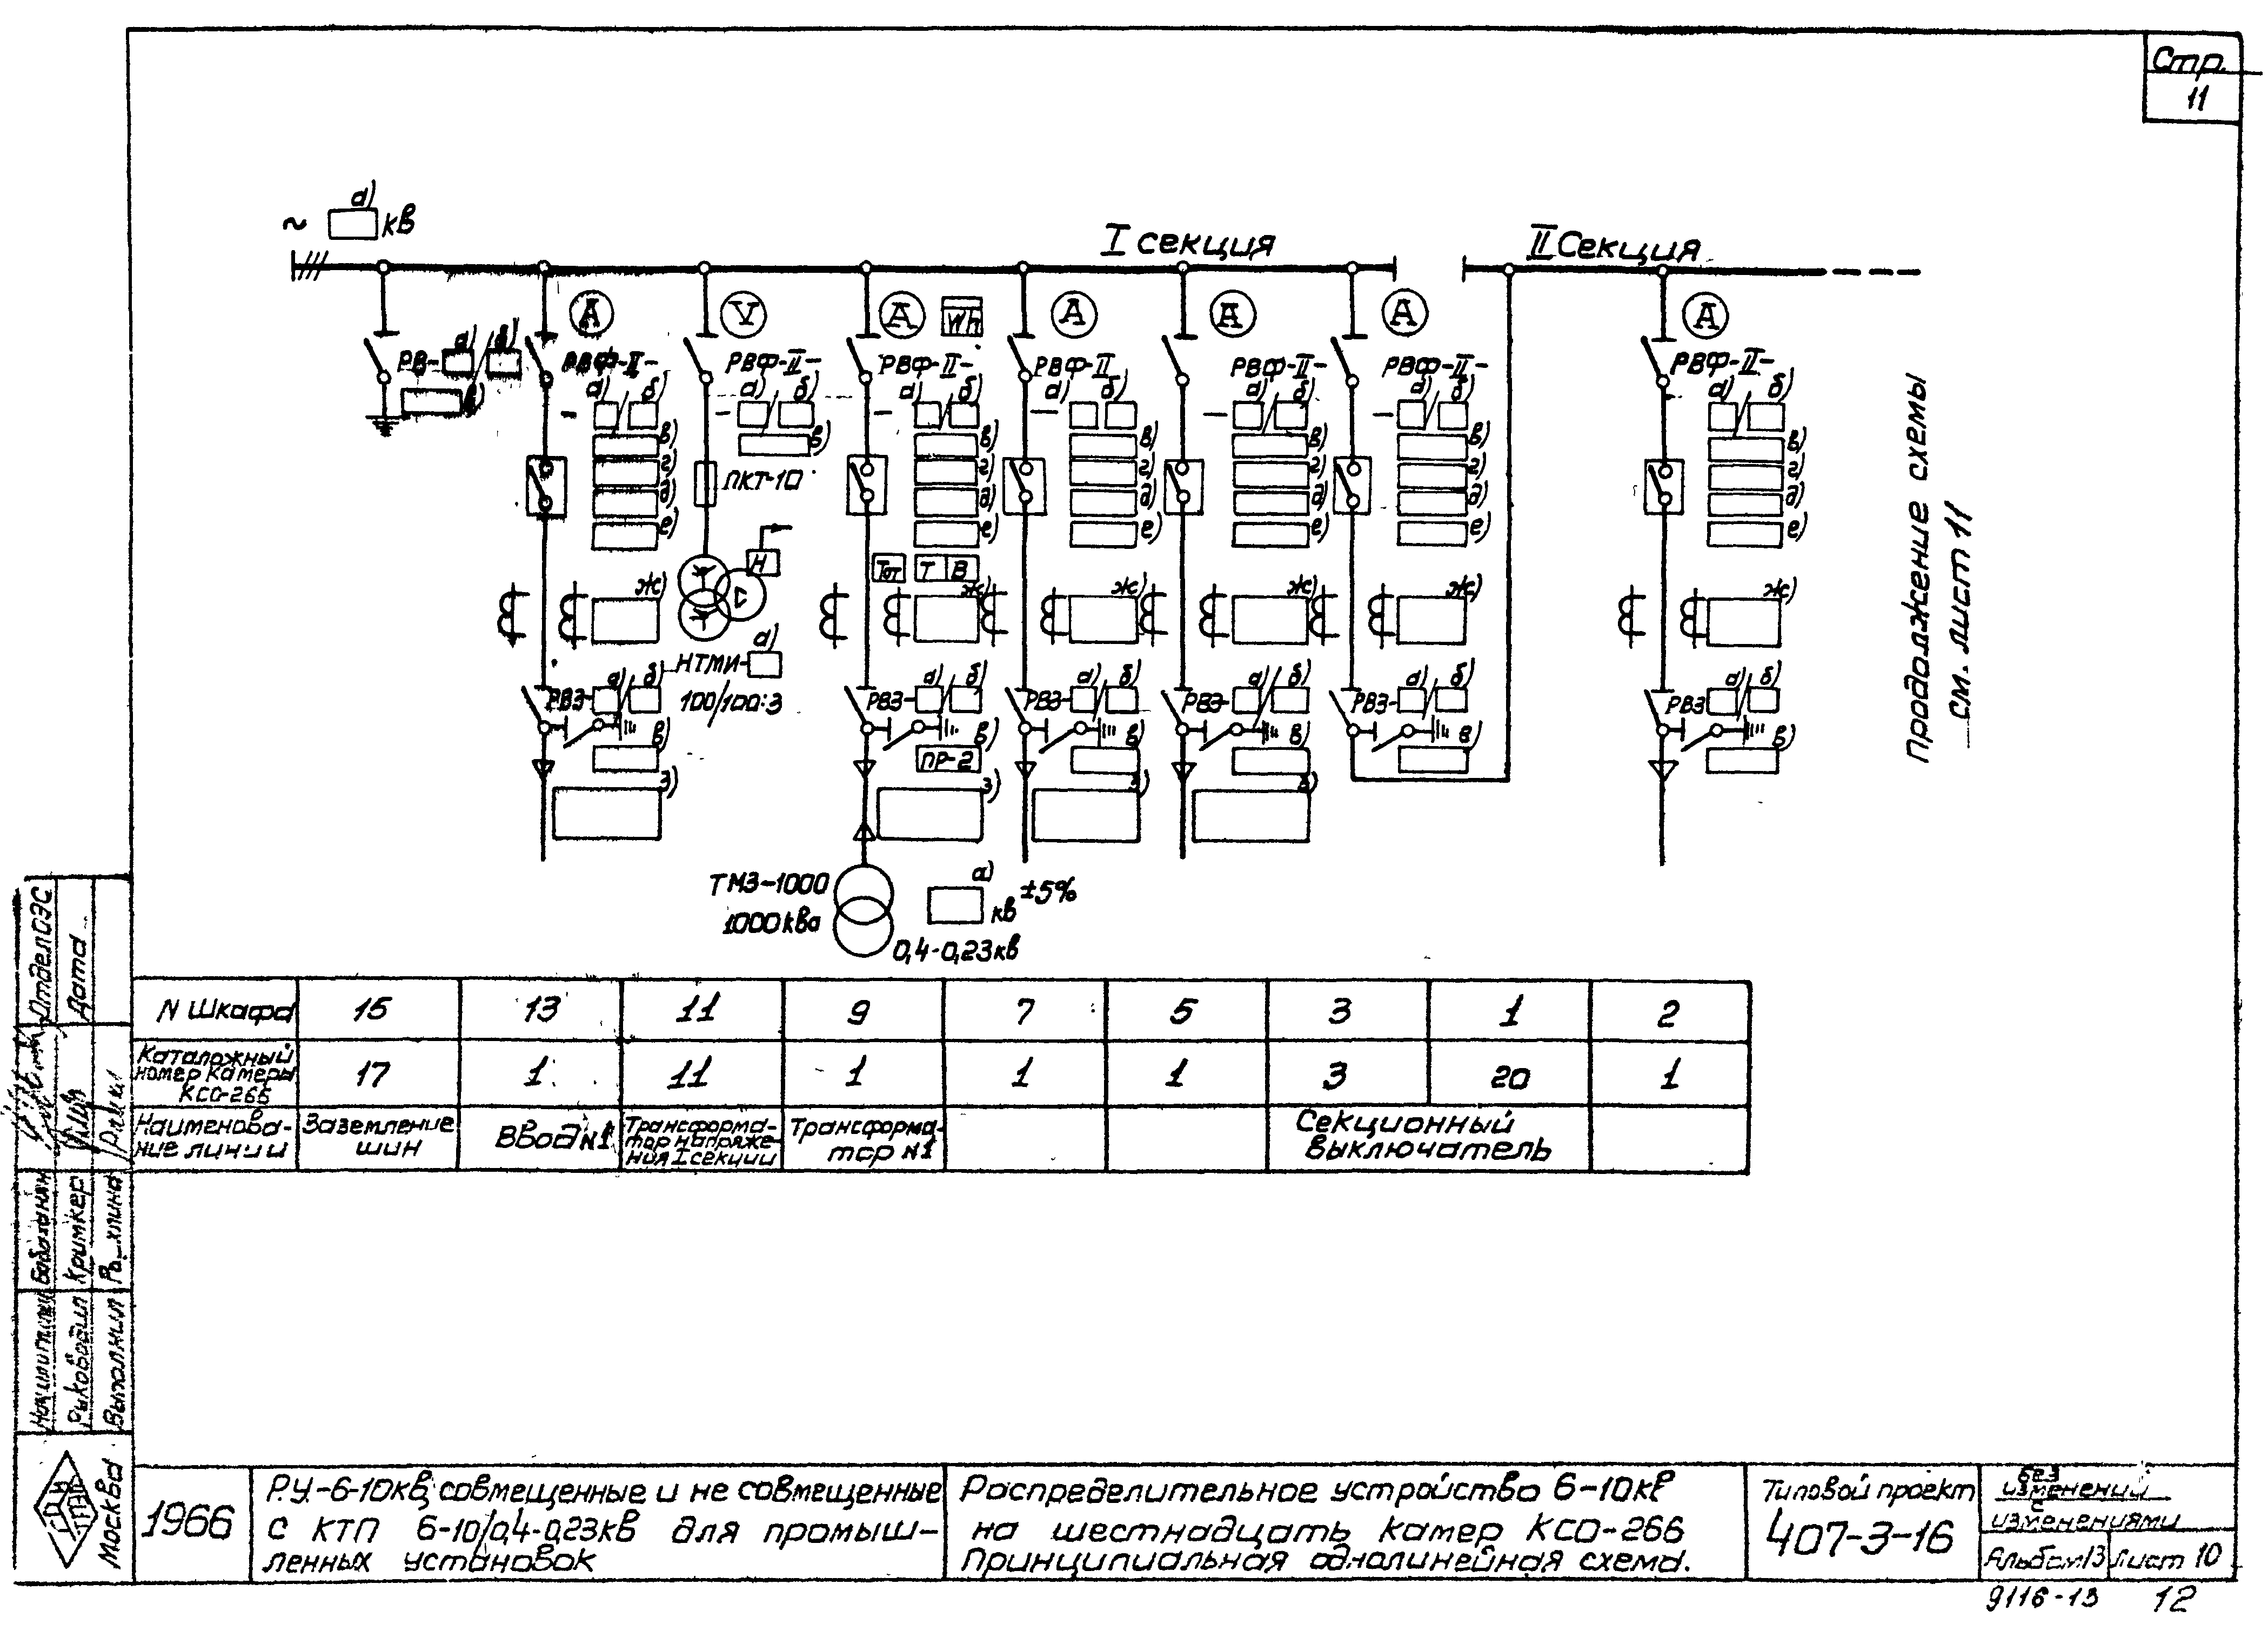 Стр.
11
а)
~ кв
I секция
II Секция
A
V
A
Wh
A
A
A
A
РВ-
а)
в)
РВФ-II-
РВФ-II-
РВФ-II-
РВФ-II
РВФ-II-
РВФ-II-
РВФ-II-
а) б)
а) б)
а) б)
а) б)
а) б)
а) б)
а) б)
в)
в)
в)
в)
в)
в)
в)
г)
г)
г)
г)
г)
г)
ПКТ-10
д)
д)
д)
д)
д)
д)
е)
е)
е)
е)
е)
е)
Н
Тот Т В
ж)
ж)
ж)
ж)
ж)
ж)
НТМИ-
а)
100/100:3
РВЗ-
РВЗ-
РВЗ-
РВЗ-
РВЗ-
РВЗ
а) б)
а) б)
а) б)
а) б)
а) б)
а) б)
в)
в)
в)
в)
в)
в)
ПР-2
з)
з)
з)
ТМЗ-1000
1000 ква
а)
кв ±5%
0,4-0,23 кв
Продолжение схемы
см. лист 11
N Шкафа 15 13 11 9 7 5 3 1 2
Каталожный
номер камеры
КСО-266
17 1 11 1 1 1 3 20 1
Наименова-
ние линии
Заземление
шин
Ввод №1
Трансформа-
тор напряже-
ния I секции
Трансформа-
тор №1
Секционный
выключатель
Отдел ОЭС
Дата
Кримкер
Руководил
Выполнил
Москва
1966
Р.У.-6-10кв, совмещенные и не совмещенные
с КТП 6-10/0,4-0,23кв для промыш-
ленных установок
Распределительное устройство 6-10кв
на шестнадцать камер КСО-266
Принципиальная однолинейная схема.
Типовой проект
407-3-16
без
изменений
с
изменениями
Альбом 13 Лист 10
9116-13 12